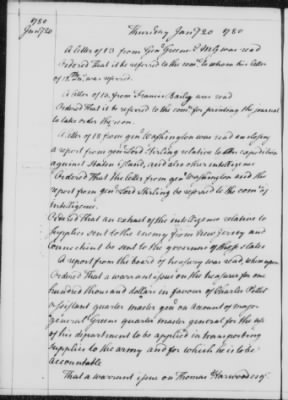 1780
Jany 20
Thursday Jany 20 1780
A letter of 13 from Genl Greene was read
Ordered That it be referred to the comee to whom his letter
of 12th was referred.
A letter of 13, from Francis Bailey was read
Ordered That it be referred to the comee for printing the journal
to take order thereon.
A letter of 18 from genl Washington was read enclosing
a report from genl lord Stirling relative to the expedition
against Staten Island, and also other intelligence
Ordered That the letter from genl Washington and the
report from genl Lord Stirling be referred to the comee of
Intelligence.
Ordered That an extract of the intelligence relative to
supplies sent to the enemy from New Jersey and
Connecticut be sent to the governors of those states
A report from the board of treasury was read whereupon
Ordered That a warrant issue on the treasurer for one
hundred thousand dollars in favour of Charles Pettit
assistant quarter master genl on account of major
general Greene quarter master general for the use
of his department to be applied in transporting
supplies to the army and for which he is to be
accountable
That a warrant issue on Thomas Harwood esqr